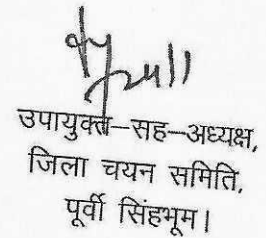 उपायुक्त–सह–अध्यक्ष,
जिला चयन समिति,
पूर्वी सिंहभूम।